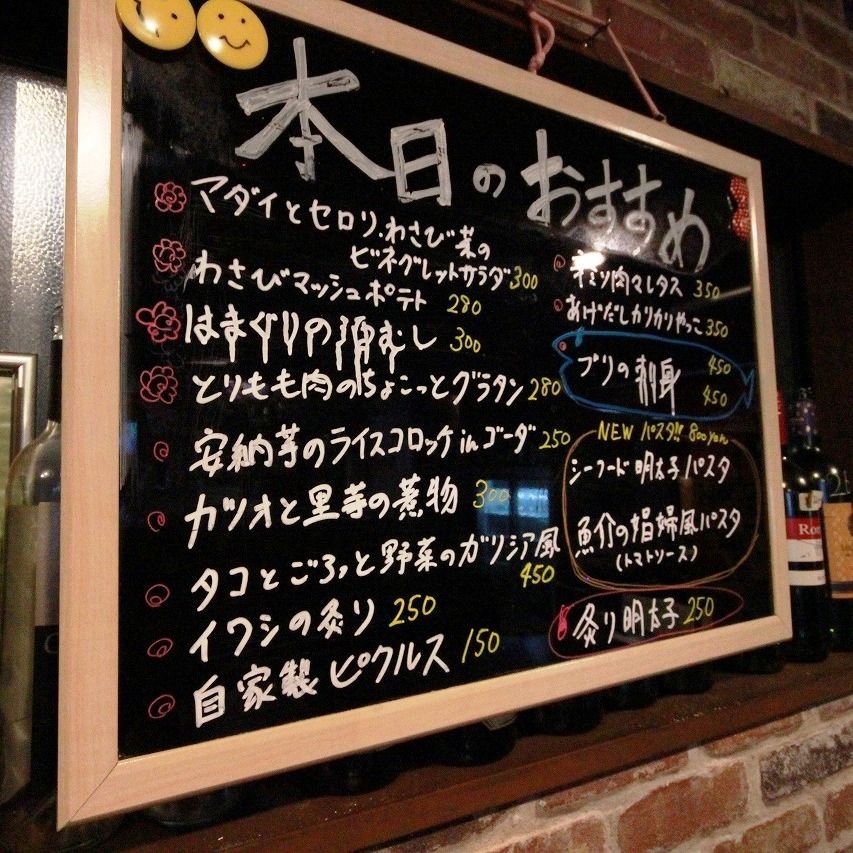 本日のおすすめ
マダイとセロリ・わさび菜の
ビネグレットサラダ 300
わさびマッシュポテト 280
はまぐりの酒むし 300
とりもも肉のちょこっとグラタン 280
安納芋のライスコロッケinゴーダ 250
カツオと里芋の煮物 300
タコとごろっと野菜のガリシア風
450
イワシの炙り 250
自家製ピクルス 150
肉マレタス 350
あげだしカリカリやっこ 350
ブリの刺身 450
450
NEW パスタ!! 800yen
シーフード明太子パスタ
魚介の娼婦風パスタ
(トマトソース)
炙り明太子 250